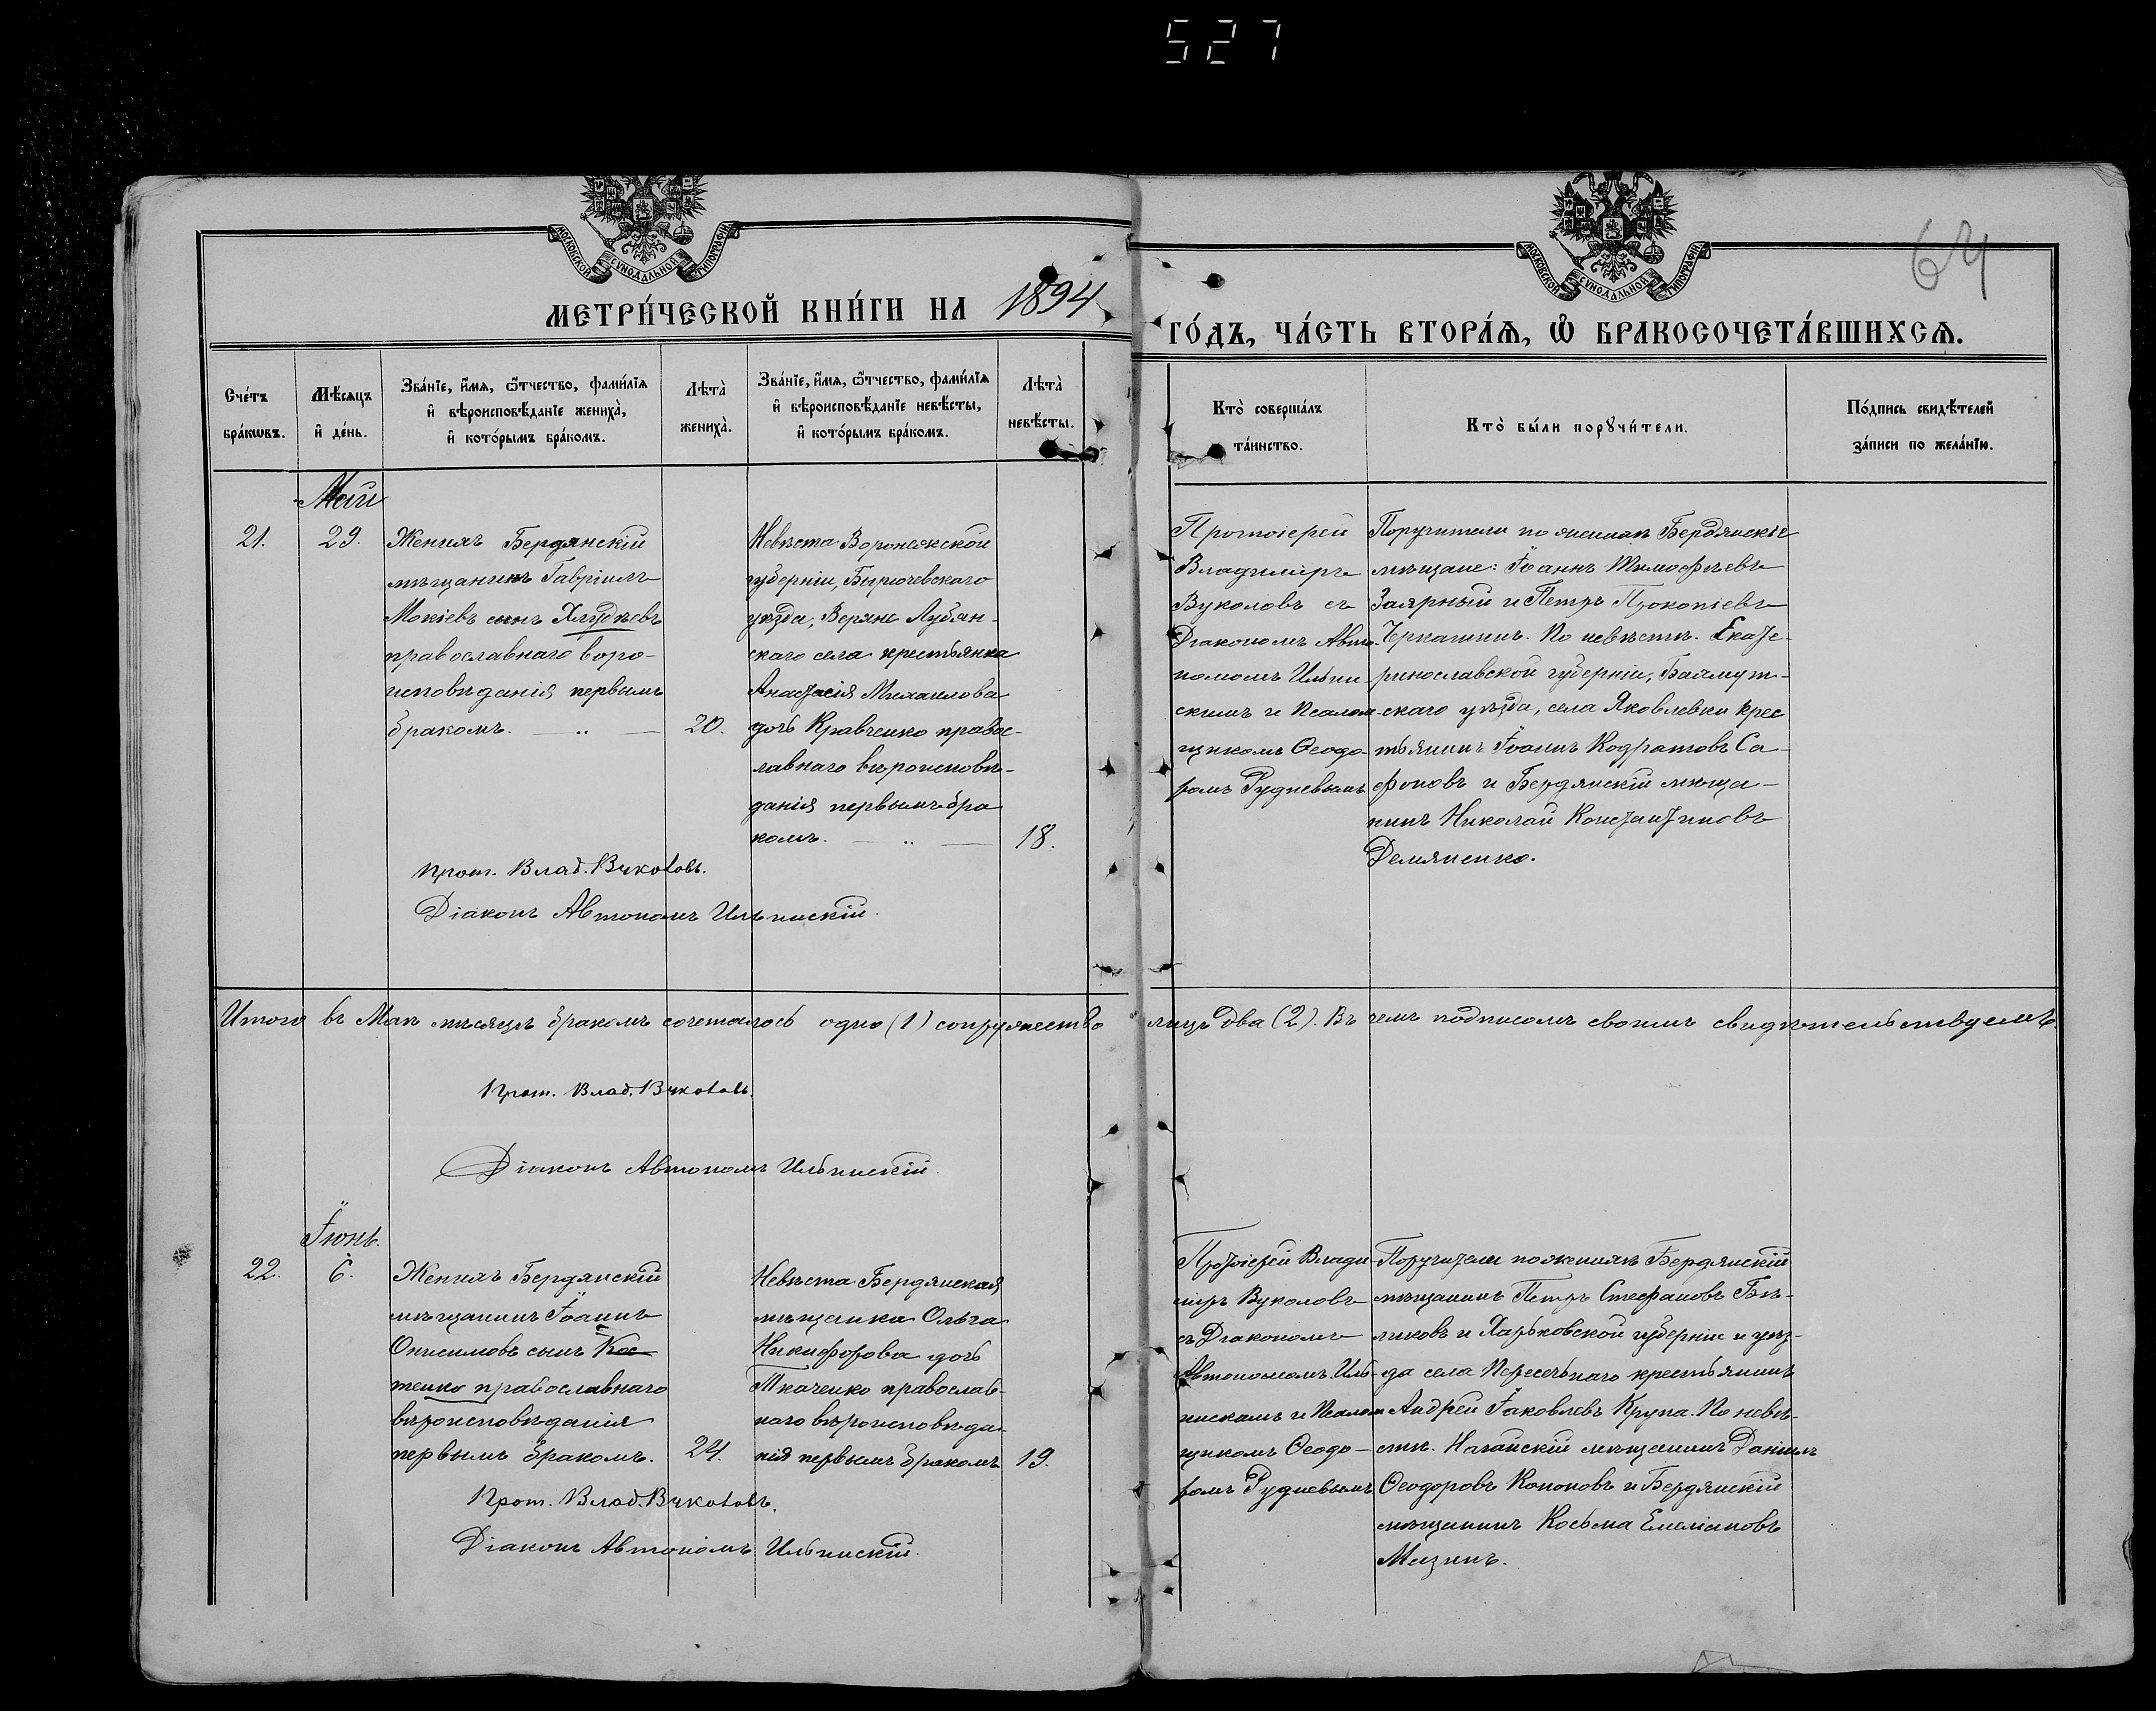 527
МОСКОВСКОЙ СУНОДАЛЬНОЙ ТИПОГРАФІИ
МОСКОВСКОЙ СУНОДАЛЬНОЙ ТИПОГРАФІИ
64
МЕТРИ́ЧЕСКОЙ КНИ́ГИ НА 1894
ГО́ДЪ, ЧА́СТЬ ВТОРА́Ѧ, Ѡ҆ БРАКОСОЧЕТА́ВШИХСѦ.
Сче́тъ
бра́кѡвъ.
Мѣ́сяцъ
и҆ де́нь.
Зва́нїе, и҆́мѧ, ѻ҆́тчество, фами́лїѧ
и҆ вѣроисповѣ́данїе жениха̀,
и҆ кото́рымъ бра́комъ.
Лѣта̀
жениха̀.
Зва́нїе, и҆́мѧ, ѻ҆́тчество, фами́лїѧ
и҆ вѣроисповѣ́данїе невѣ́сты,
и҆ кото́рымъ бра́комъ.
Лѣта̀
невѣ́сты.
Кто̀ соверша́лъ
та́инство.
Кто̀ бы́ли порꙋчи́тели.
По́дпись свидѣ́телей
за́писи по жела́нїю.
Май
21.
29.
Женихъ Бердянскій
мѣщанинъ Гавріилъ
Мокіевъ сынъ Хлудѣевъ
православнаго вѣро-
исповѣданія первымъ
бракомъ. — „ —
20.
Невѣста Воронежской
губерніи, Бирючевскаго
уѣзда, Верхне Лубян-
скаго села крестьянка
Анастасія Михаилова
дочь Кравченко правос-
лавнаго вѣроисповѣ-
данія первымъ бра
комъ. — „ —
18.
Протоіерей
Владиміръ
Вуколовъ съ
Діакономъ Авто-
номомъ Ильин-
скимъ и Псалом-
щикомъ Ѳеодо-
ромъ Рудневымъ
Поручители по женихѣ Бердянскіе
мѣщане: Іоаннъ Тимофѣевъ
Заярный и Петръ Прокопіевъ
Черкашинъ. По невѣстѣ. Екате-
ринославской губерніи, Бахмут-
скаго уѣзда, села Яковлевки крес
тьянинъ Іоаннъ Кодратовъ Са-
фоновъ и Бердянскій мѣща-
нинъ Николай Константиновъ
Демяненко.
Прот. Влад. Вуколовъ.
Діаконъ Автономъ Ильинскій.
Итого въ Маѣ мѣсяцѣ бракомъ сочеталось одно (1) супружество лицъ два (2). Въ чемъ подписомъ своимъ свидѣтельствуемъ.
Прот. Влад. Вуколовъ.
Діаконъ Автономъ Ильинскій.
Іюнь.
22.
6.
Женихъ Бердянскій
мѣщанинъ Іоаннъ
Онисимовъ сынъ Кос
тенко православнаго
вѣроисповѣданія
первымъ бракомъ.
24.
Невѣста Бердянская
мѣщанка Ольга
Никифорова дочь
Ткаченко православ-
наго вѣроисповѣда-
нія первымъ бракомъ
19.
Протоіерей Влади
міръ Вуколовъ
съ Діакономъ
Автономомъ Иль-
инскимъ и Псалом
щикомъ Ѳеодо-
ромъ Рудневымъ
Поручители по женихѣ Бердянскій
мѣщанинъ Петръ Стефановъ Бѣ-
ликовъ и Харьковской губерніи и уѣз-
да села Пересѣчнаго крестьянинъ
Андрей Іаковлевъ Крупа. По невѣ-
стѣ. Нагайскій мѣщанинъ Даніилъ
Ѳеодоровъ Кононовъ и Бердянскій
мѣщанинъ Косьма Емеліановъ
Мазинъ.
Прот. Влад. Вуколовъ.
Діаконъ Автономъ Ильинскій.